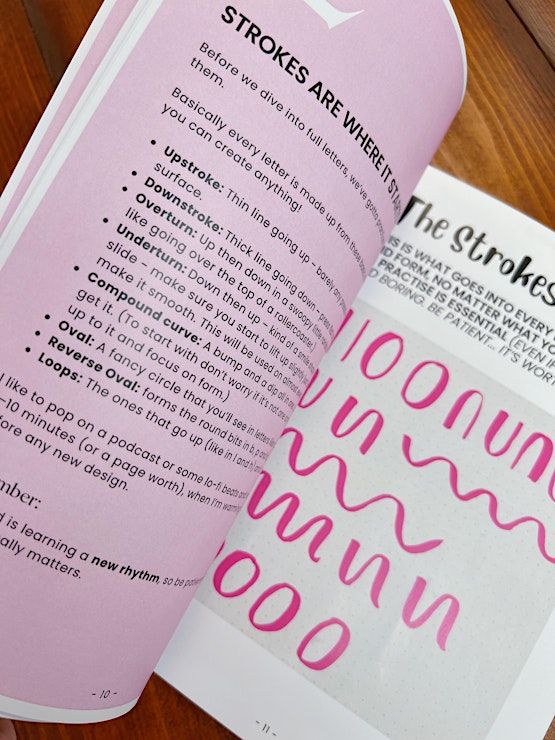 STROKES ARE WHERE IT
Before we dive into full letters, we've gotta
them.
Basically every letter is made up from these
you can create anything!
• Upstroke: Thin line going up – barely any
surface.
• Downstroke: Thick line going down –
• Overturn: Up then down in a swoopy little
like going over the top of a rollercoaster!
• Underturn: Down then up – kind of a smile
slide – make sure you start to lift up slightly
make it smooth. This will be used on almost
• Compound curve: A bump and a dip all in
get it. (To start with don't worry if it's not
up to it and focus on form.)
• Oval: A fancy circle that you'll see in letters
• Reverse Oval: forms the round bits in b, p
• Loops: The ones that go up (like in l and h)
I like to pop on a podcast or some lo-fi beats
–10 minutes (or a page worth), when I'm
fore any new design.
mber:
d is learning a new rhythm, so be
ally matters.
- 10 -
The Strokes
IS IS WHAT GOES INTO EVERY
D FORM. NO MATTER WHAT
PRACTISE IS ESSENTIAL (EVEN IF
BORING. BE PATIENT... IT'S
- 11 -